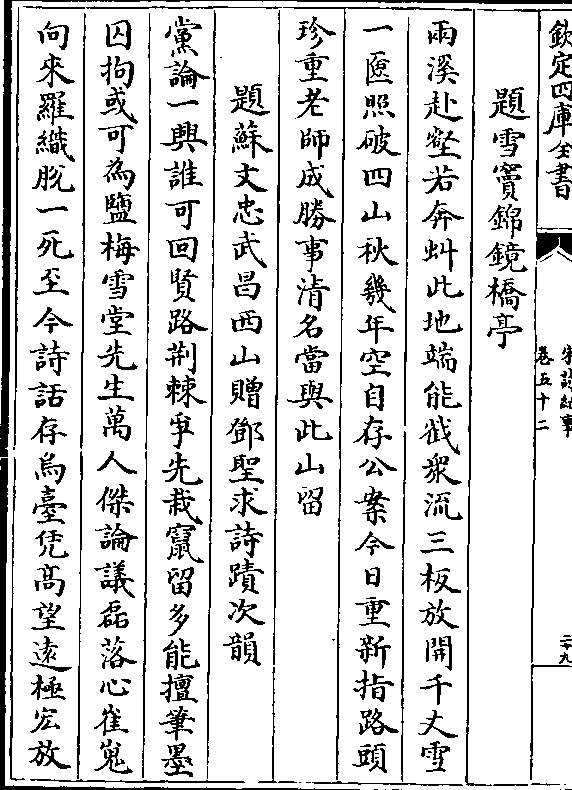 欽定四庫全書
宋詩紀事
卷五十二
二十九
題雪竇錦鏡橋亭
兩溪赴壑若奔虯此地端能截衆流三板放開千丈雪
一匳照破四山秋幾年空自存公案今日重新指路頭
珍重老師成勝事清名當與此山留
題蘇文忠武昌西山贈鄧聖求詩蹟次韻
黨論一興誰可回賢路荆棘爭先栽竄留多能擅筆墨
囚拘或可為鹽梅雪堂先生萬人傑論議磊落心崔嵬
向來羅織脫一死至今詩話存烏臺凭高望遠極宏放